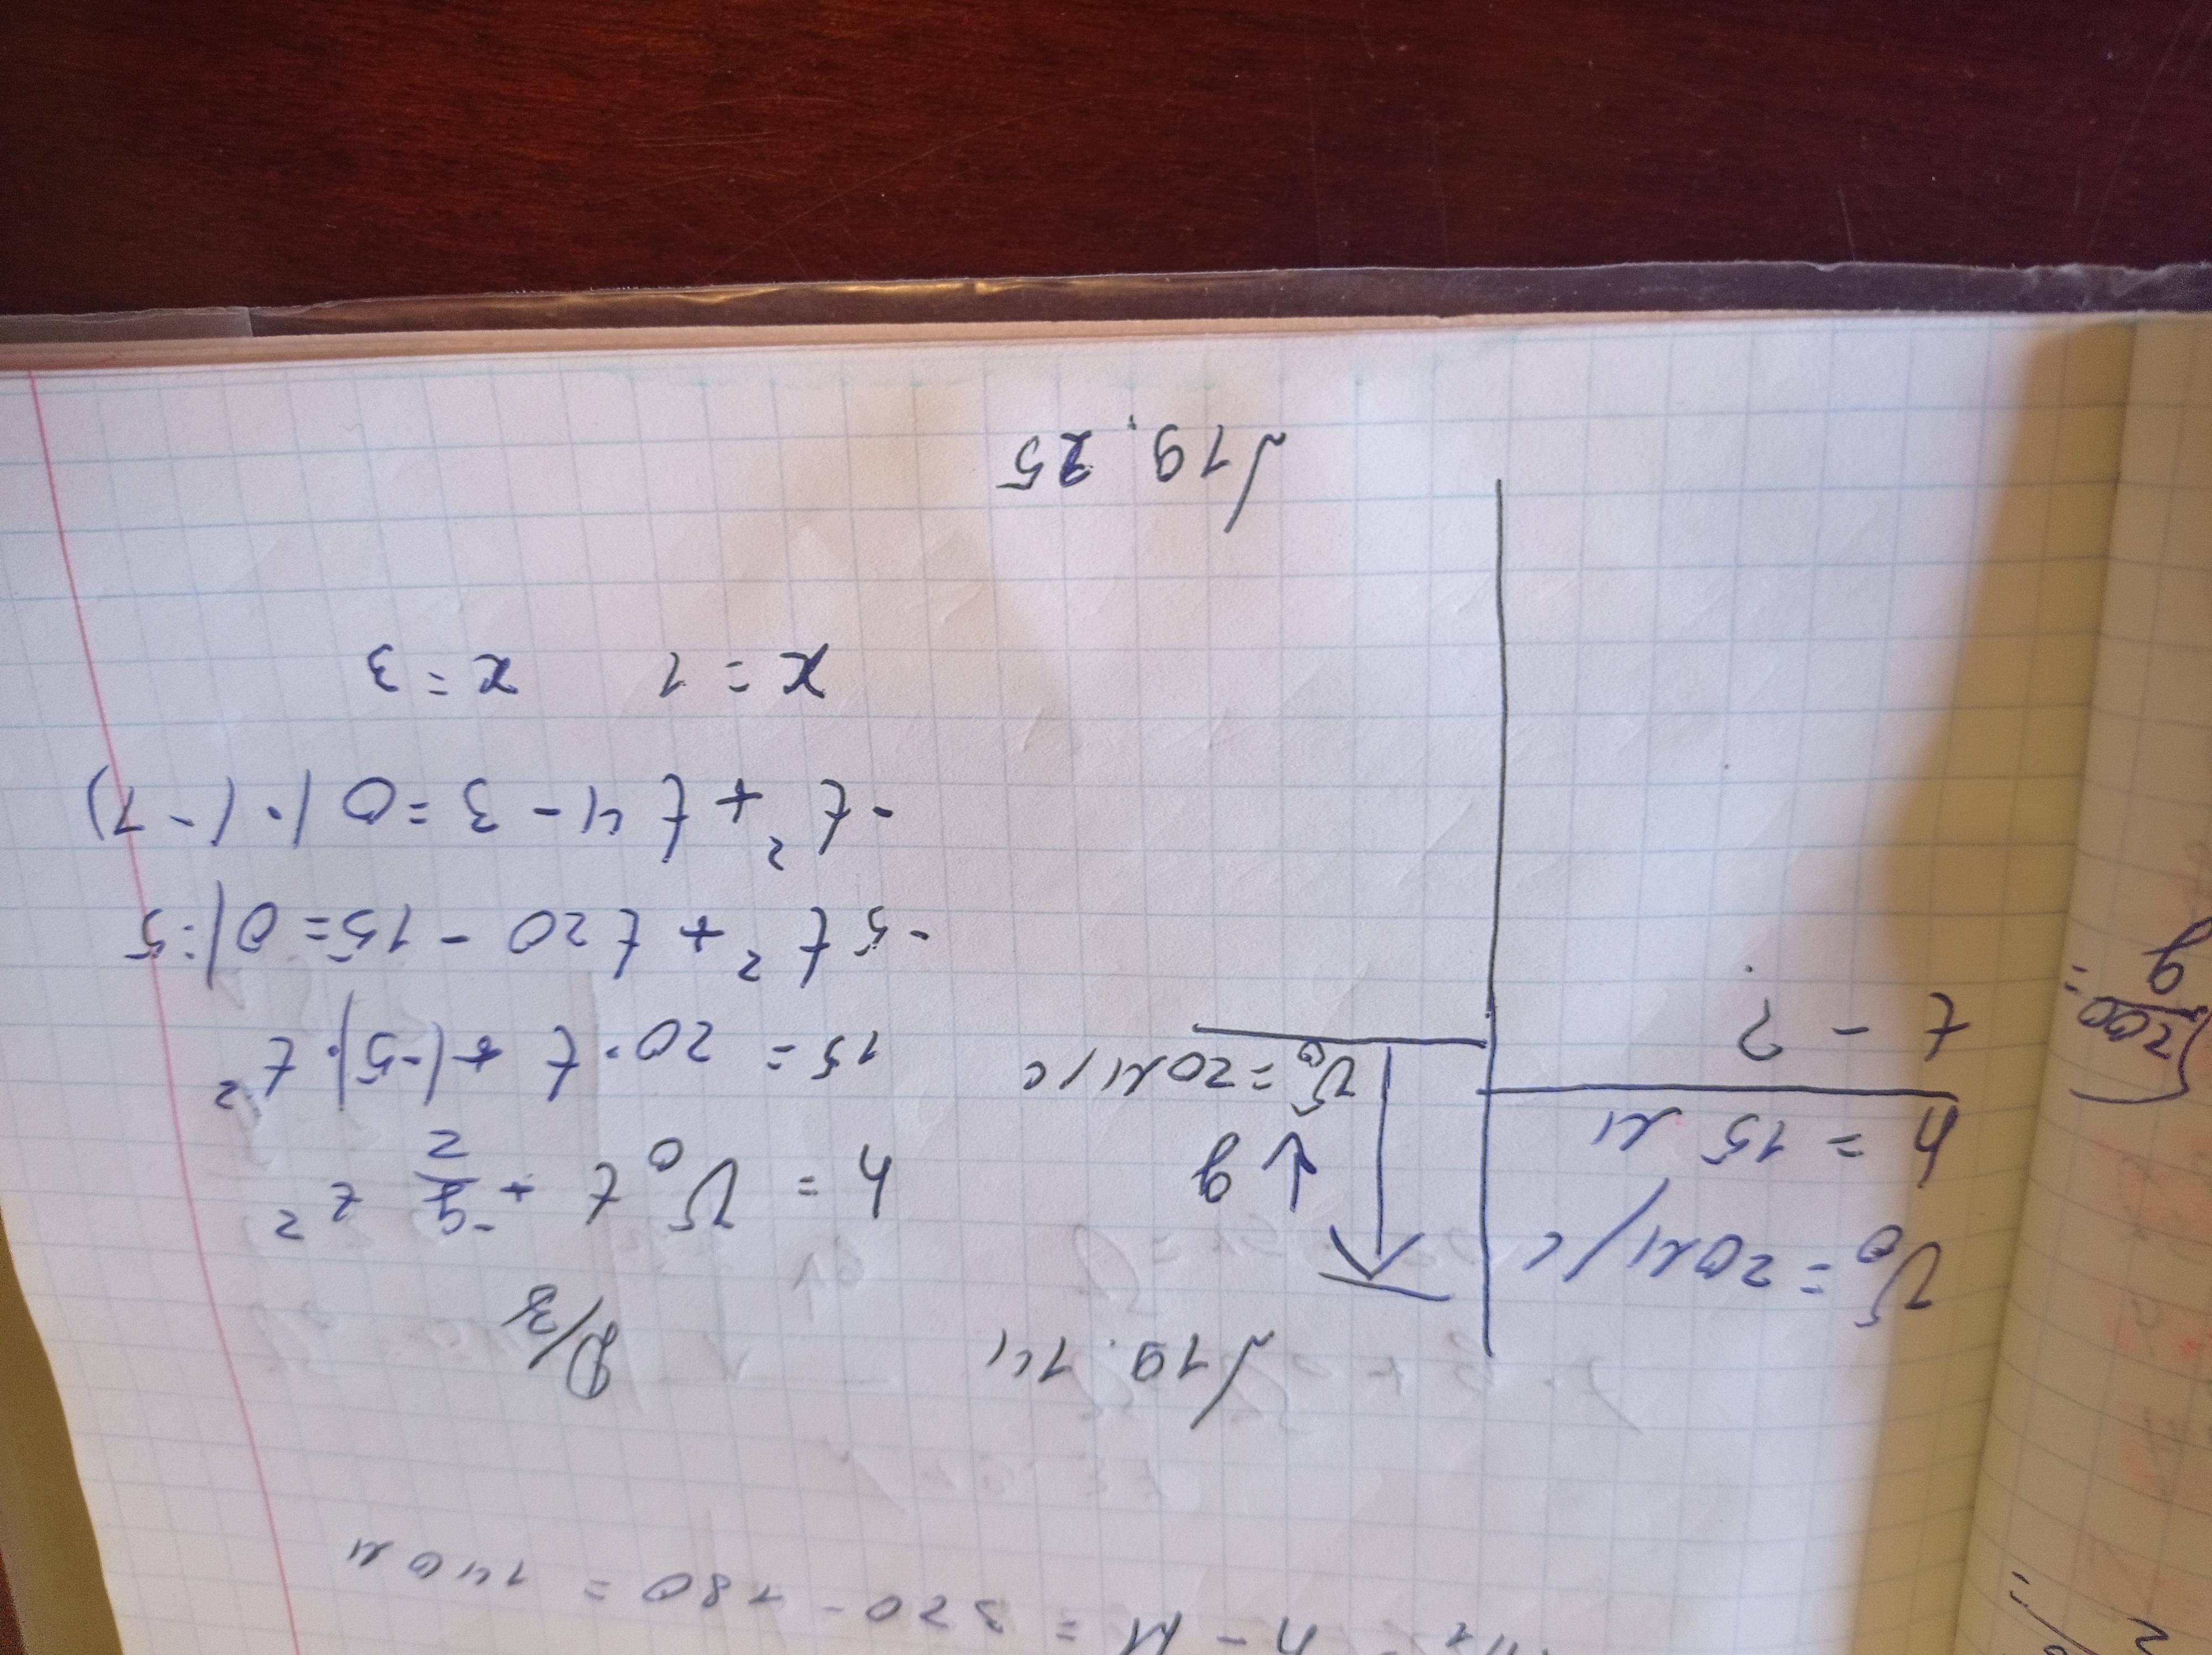 h - H = 320 - 180 = 140 м
√19.14
Д/З
v₀ = 20 м/с
h = 15 м
t - ?
g
v₀ = 20 м/с
h = v₀ t + -g/2 t²
15 = 20 · t + (-5) · t²
-5 t² + t 20 - 15 = 0 |:5
-t² + t 4 - 3 = 0 | · (-1)
x = 1 x = 3
√19.25
200
g
=